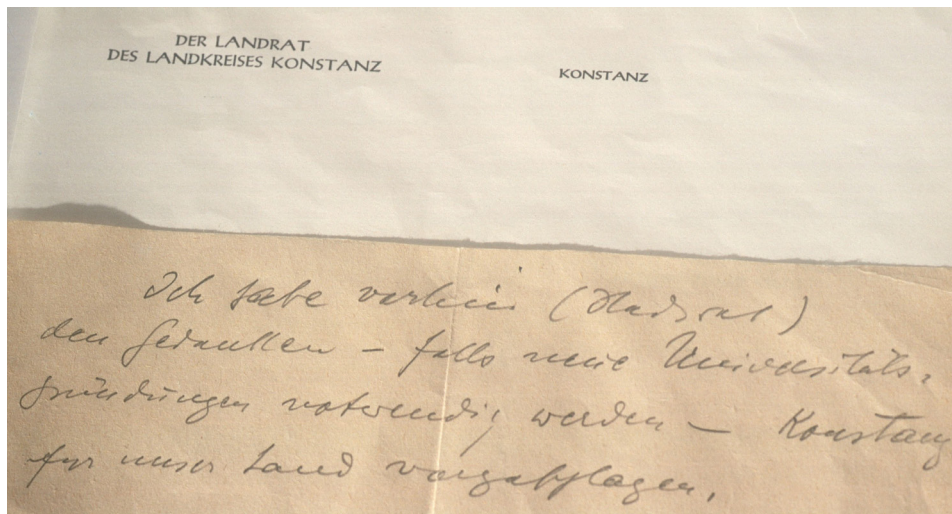 DER LANDRAT
DES LANDKREISES KONSTANZ
KONSTANZ
Ich habe vorhin (Stadtrat)
den Gedanken – falls neue Universitäts-
gründungen notwendig werden – Konstanz
für unser Land vorgeschlagen.